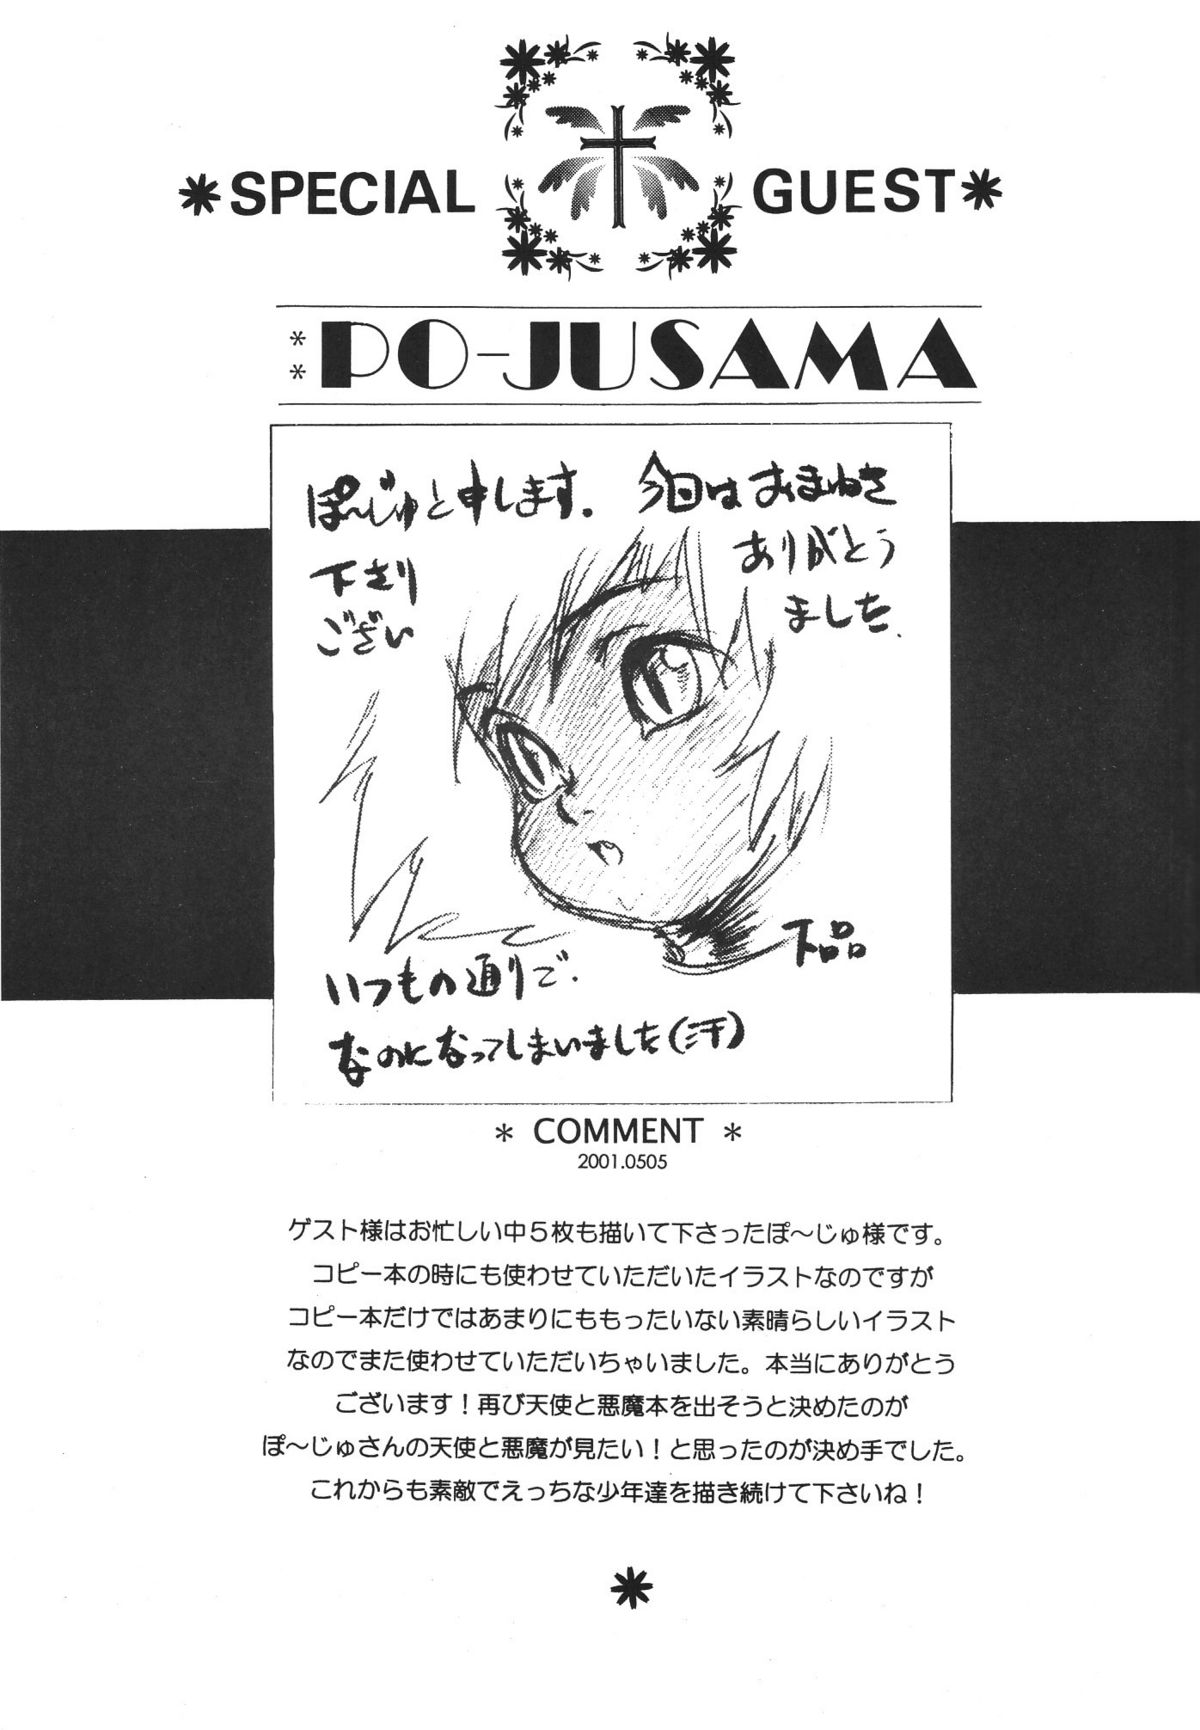 SPECIAL GUEST
PO-JUSAMA
ぽ〜じゅと申します。今回はおまねき
下さり ありがとう
ござい ました.
下品
いつもの通りで.
なのになってしまいました(汗)
COMMENT
2001.0505
ゲスト様はお忙しい中5枚も描いて下さったぽ〜じゅ様です。
コピー本の時にも使わせていただいたイラストなのですが
コピー本だけではあまりにももったいない素晴らしいイラスト
なのでまた使わせていただいちゃいました。本当にありがとう
ございます！再び天使と悪魔本を出そうと決めたのが
ぽ〜じゅさんの天使と悪魔が見たい！と思ったのが決め手でした。
これからも素敵でえっちな少年達を描き続けて下さいね！